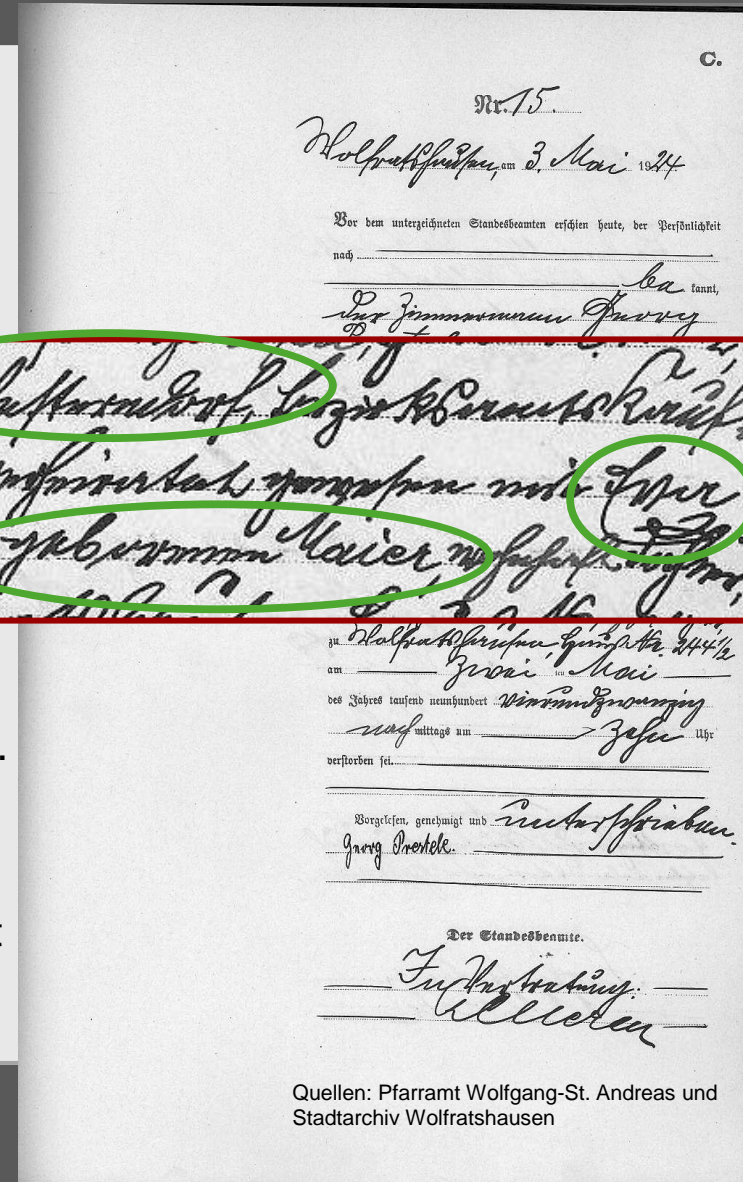 C.
Nr. 15.
Wolfratshausen, am 3. Mai 1924
Vor dem unterzeichneten Standesbeamten erschien heute, der Persönlichkeit
nach
be kannt,
der Zimmermann Georg
Bezirksamts Kauf
verheiratet gewesen mit
geborenen Maier, wohnhaft
zu Wolfratshausen, Haus Nr. 244 1/2
am Zwei ten Mai
des Jahres tausend neunhundert vierundzwanzig
nach mittags um Zehn Uhr
verstorben sei.
Vorgelesen, genehmigt und unterschrieben.
Georg Prestele.
Der Standesbeamte.
In Vertretung.
Quellen: Pfarramt Wolfgang-St. Andreas und
Stadtarchiv Wolfratshausen